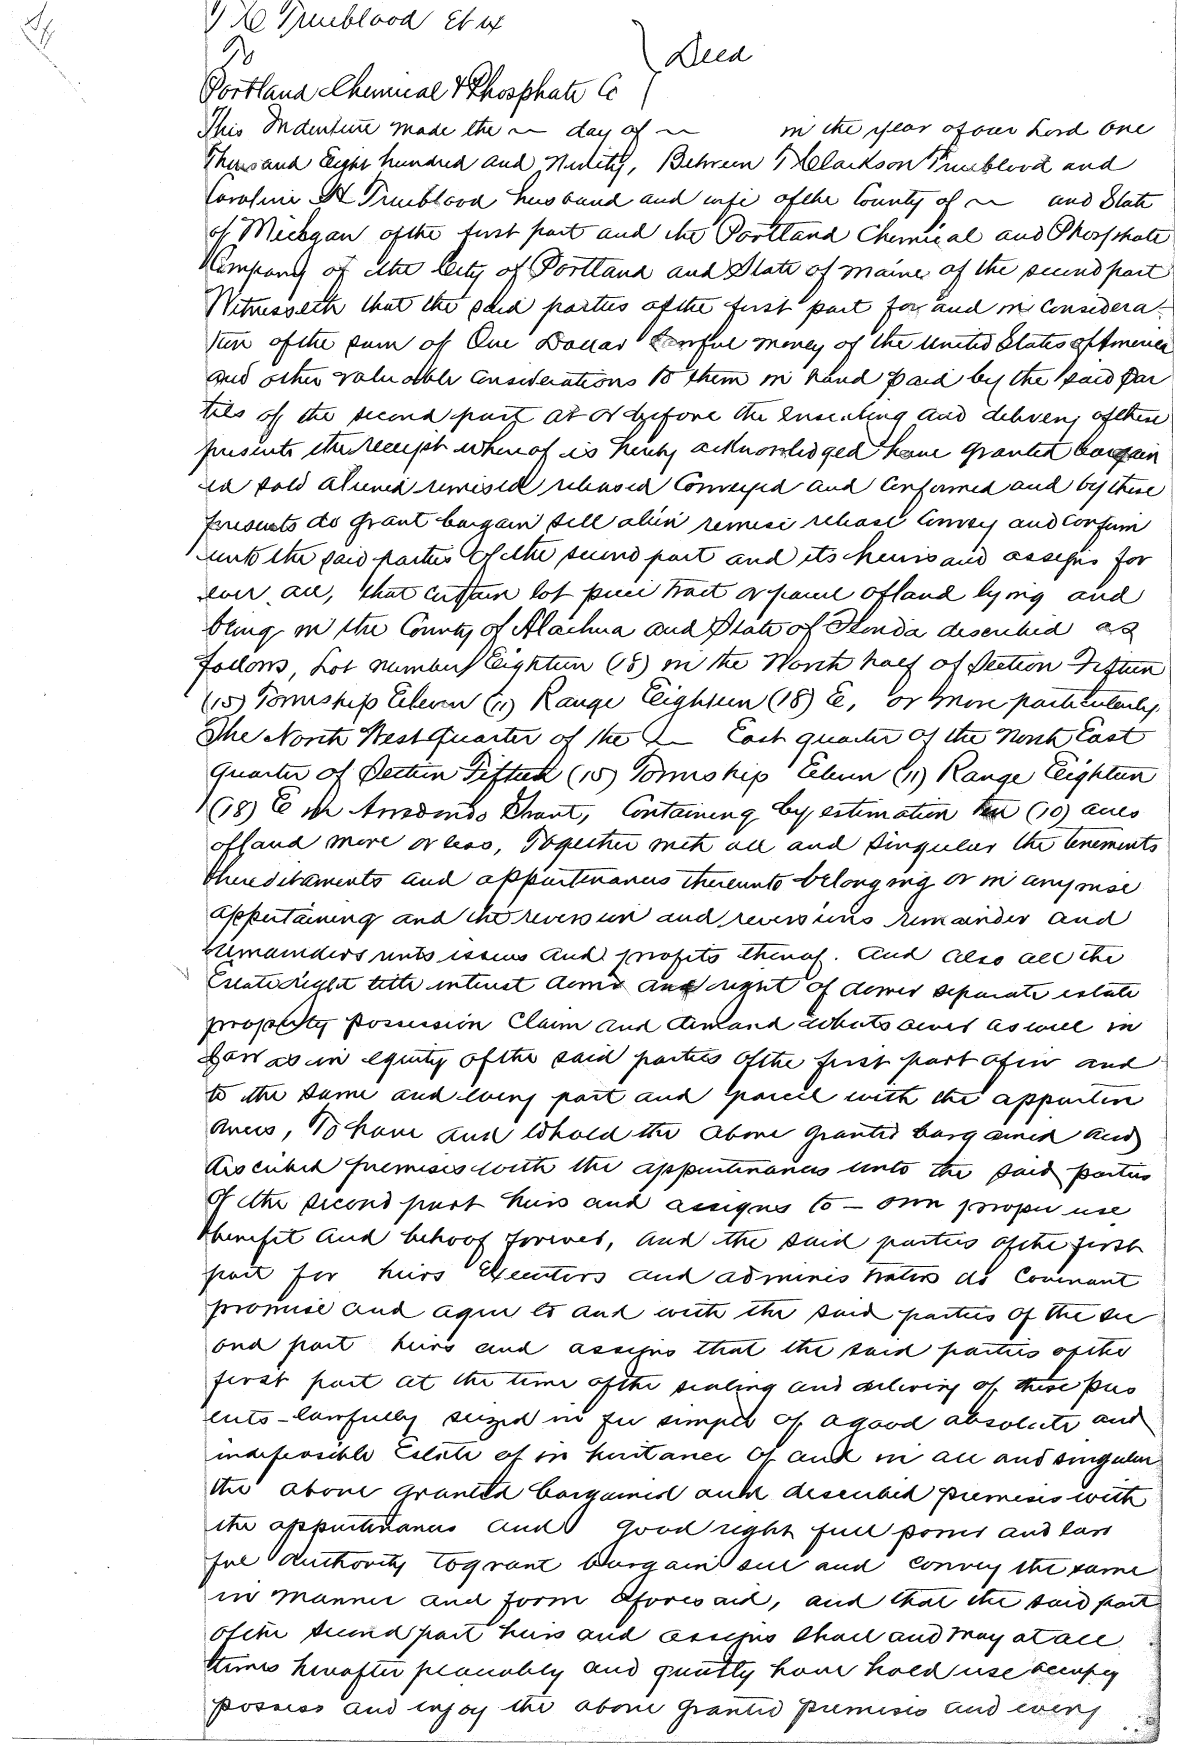 T C Trueblood Et ux
To
Deed
Portland Chemical & Phosphate Co
This Indenture made the ~ day of ~ in the year of our Lord One
Thousand Eight hundred and Ninety, Between T Clarkson Trueblood and
Caroline H Trueblood husband and wife of the County of ~ and State
of Michgan of the first part and the Portland Chemical and Phosphate
Company of the City of Portland and State of Maine of the second part
Witnesseth that the said parties of the first part for and in considera-
tion of the sum of One Dollar Lawful money of the United States of America
and other valuable considerations to them in hand paid by the said par
ties of the second part at or before the ensealing and delivery of these
presents the receipt whereof is hereby acknowledged have granted bargain
ed sold aliened remised released Conveyed and Confirmed and by these
presents do grant bargain sell alien remise release Convey and confirm
unto the said parties of the second part and its heirs and assigns for
ever all, that certain lot piece tract or parcel of land lying and
being in the County of Alachua and State of Florida described as
follows, Lot number Eighteen (18) in the North half of Section Fifteen
(15) Township Eleven (11) Range Eighteen (18) E, or more particularly.
The North West quarter of the ~ East quarter of the North East
quarter of Section Fifteen (15) Township Eleven (11) Range Eighteen
(18) E in Arredondo Grant, Containing by estimation ten (10) acres
of land more or less, Together with all and singular the tenements
hereditaments and appurtenances thereunto belonging or in anywise
appertaining and the reversion and reversions remainder and
remainders rents issues and profits thereof. And also all the
Estate right title interest dower and right of dower separate estate
property possession claim and demand whatsoever as well in
Law as in equity of the said parties of the first part of in and
to the same and every part and parcel with the appurten
ances, To have and to hold the above granted bargained and
described premises with the appurtenances unto the said parties
of the second part heirs and assigns to — own proper use
benefit and behoof forever, and the said parties of the first
part for heirs Executors and administrators do Covenant
promise and agree to and with the said parties of the sec
ond part heirs and assigns that the said parties of the
first part at the time of the sealing and delivery of these pres
ents - lawfully seized in fee simple of a good absolute and
indefeasible Estate of inheritance of and in all and singular
the above granted bargained and described premises with
the appurtenances and good right full power and law
ful authority to grant bargain sell and convey the same
in manner and form aforesaid, and that the said part
of the second part heirs and assigns shall and may at all
times hereafter peaceably and quietly have hold use occupy
possess and enjoy the above granted premises and every